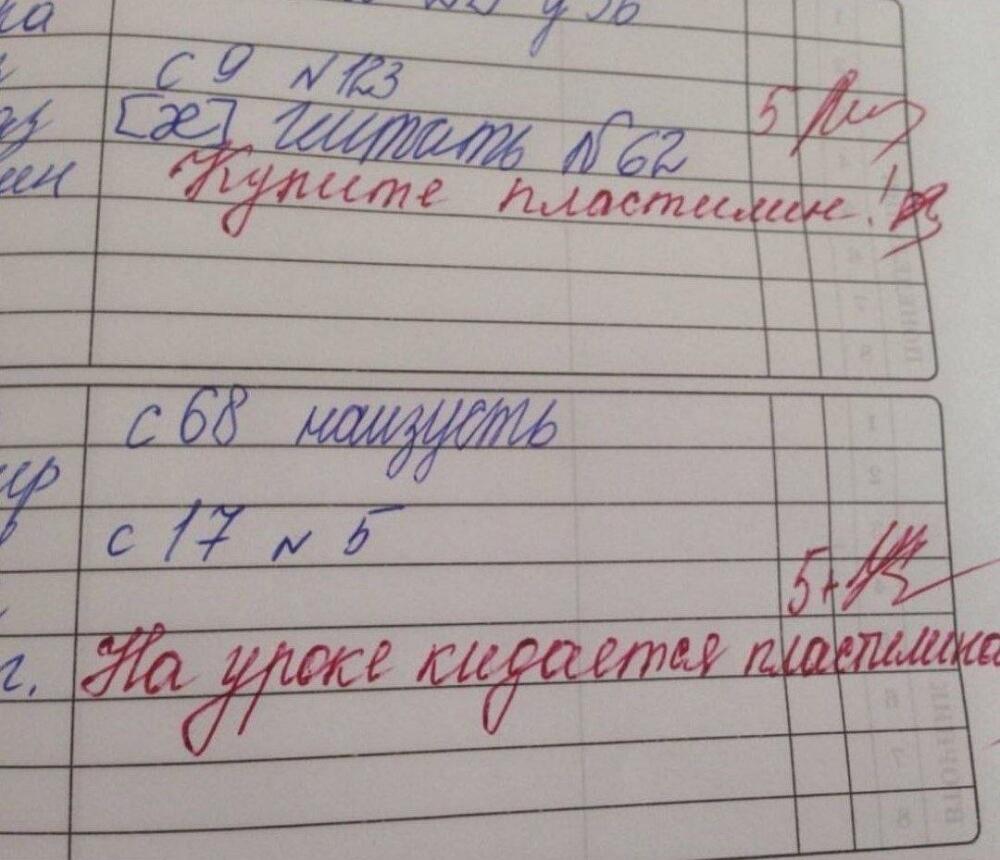 ка
с 9 №123
[ж] читать №62
5
Купите пластилин!
с 68 наизусть
с 17 № 5
5+
г. На уроке кидается пластилино